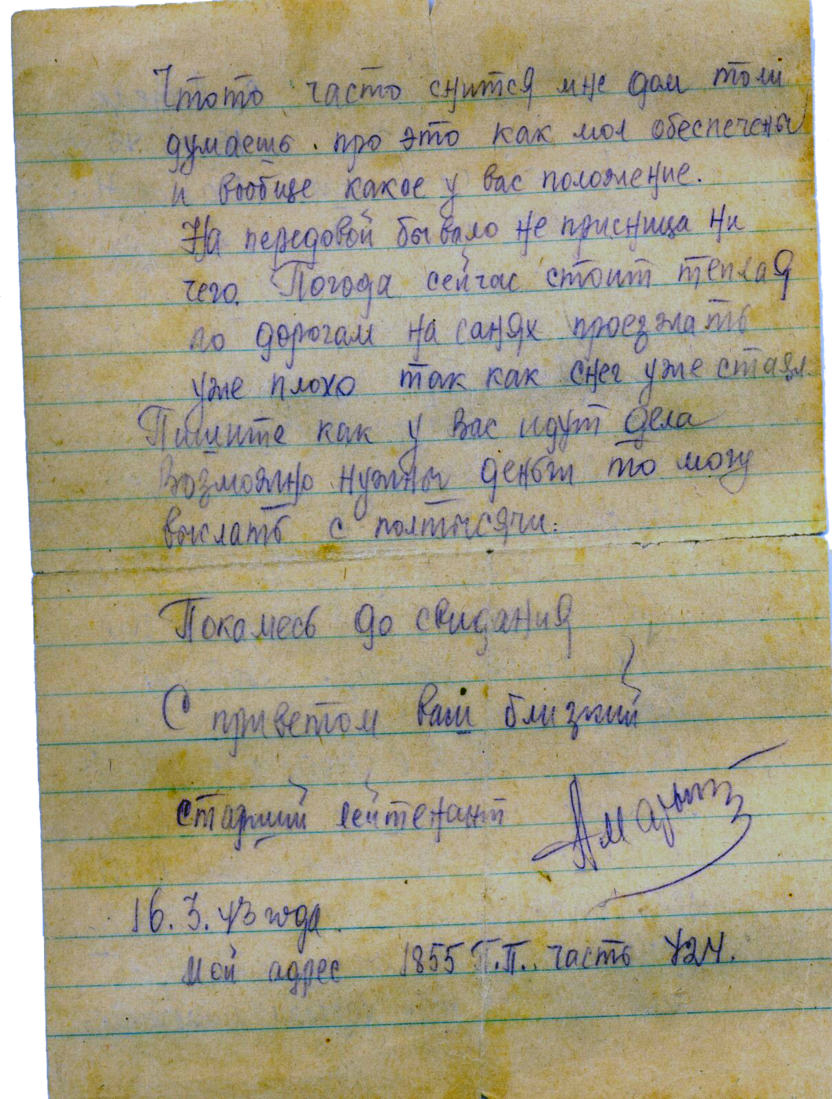 Чтото часто снится мне дом толи
думаешь. про это как мол обеспечены
и вообще какое у вас положение.
На передовой бывало не присница ни
чего. Погода сейчас стоит теплая
по дорогам на санях проезжать
уже плохо так как снег уже стаял.
Пишите как у Вас идут дела
Возможно нужны деньги то могу
выслать с полтысячи.
Покамесь до свидания
С приветом ваш близкий
старший лейтенант
16.3.43 года
Мой адрес 1855 П.П. часть 424.